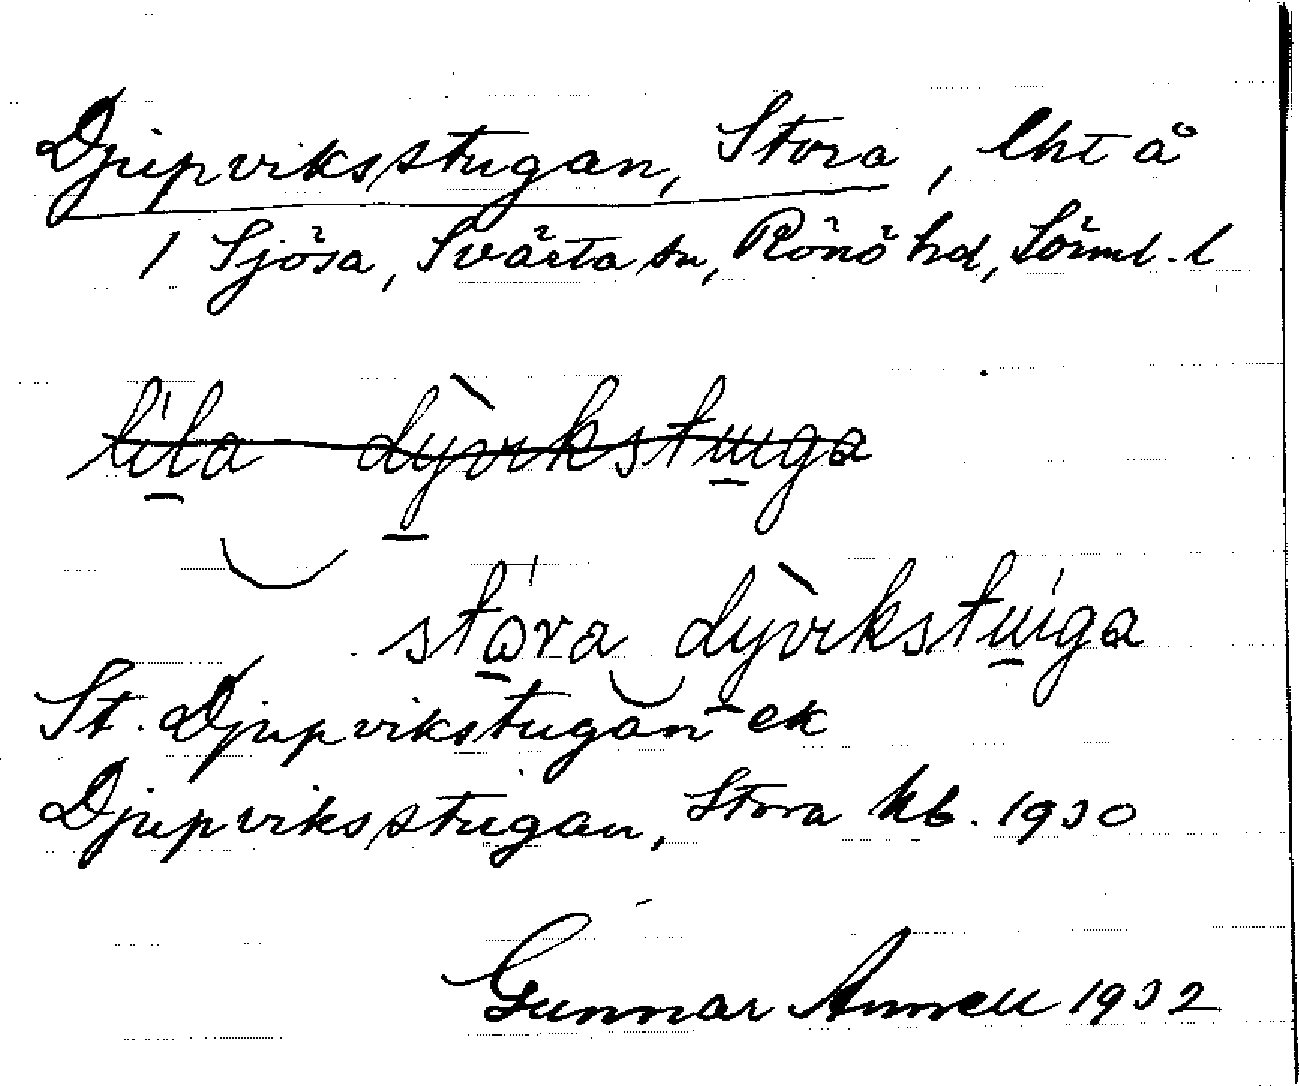 Djupviksstugan, Stora, lht å
1 Sjösa, Svärta sn, Rönö hd, Sörml. l
lila dyvikstuga
stora dyvikstuga
St. Djupvikstugan ek
Djupviksstugan, Stora kb. 1930
Gunnar Annell 1932